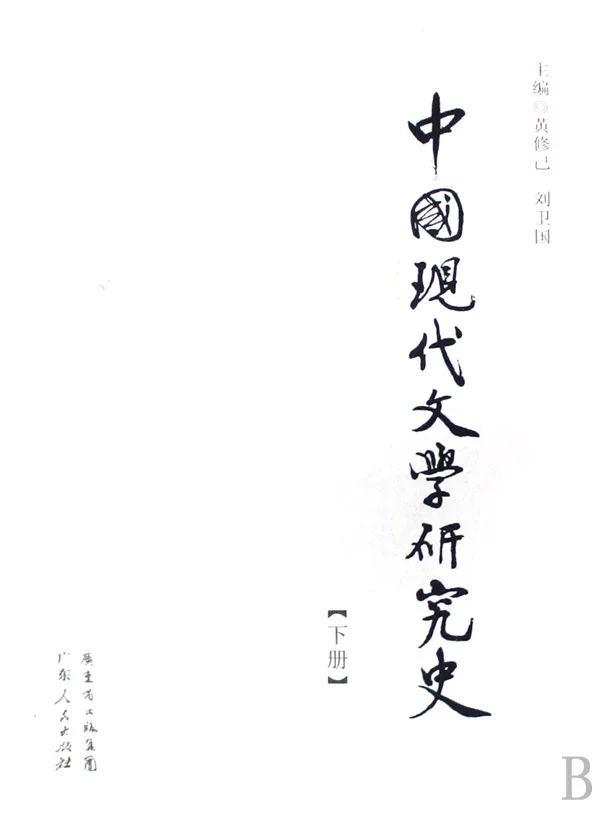 主编◎黄修己 刘卫国
中國現代文學研究史
【下册】
廣東省出版集團
广东人民出版社
B